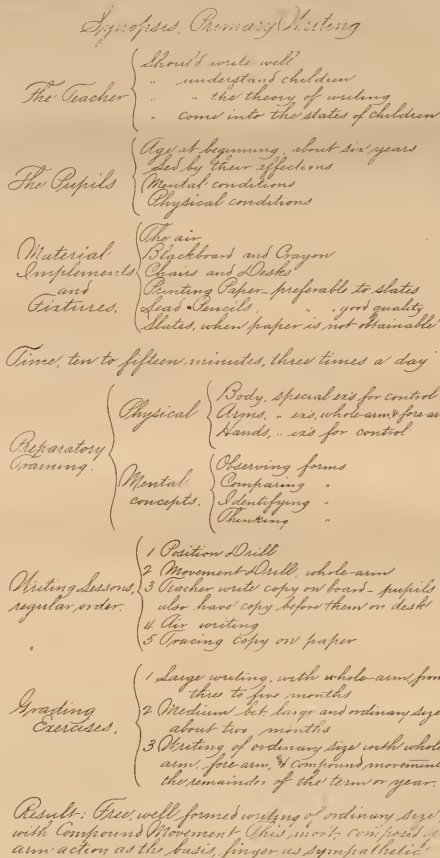 Synopsis, Primary Writing
The Teacher
Should write well
" understand children
" " the theory of writing
" come into the states of children
The Pupils
Age at beginning, about six years
Led by their affections
Mental conditions
Physical conditions
Material Implements and Fixtures.
The air
Blackboard and Crayon
Chairs and Desks
Printing Paper - preferable to slates
Lead Pencils, " " good quality
Slates, when paper is not obtainable
Time, ten to fifteen minutes, three times a day
Preparatory Training.
Physical
Body, special ex's for control
Arms, " ex's, whole-arm, & fore-ar
Hands, " ex's for control
Mental concepts.
Observing forms
Comparing "
Identifying "
Thinking "
Writing Lessons, regular order.
1 Position Drill
2 Movement Drill, whole-arm
3 Teacher write copy on board - pupils
also have copy before them on desks
4 Air writing
5 Tracing copy on paper
Grading Exercises.
1 Large writing, with whole-arm, from
three to five months
2 Medium bet. large and ordinary size
about two months
3 Writing of ordinary size with whole
arm, fore-arm, & compound movement
the remainder of the term or year.
Result: Free, well formed writing of ordinary size,
with Compound Movement. This mort. composed
arm action as the basis, finger as sympathetic